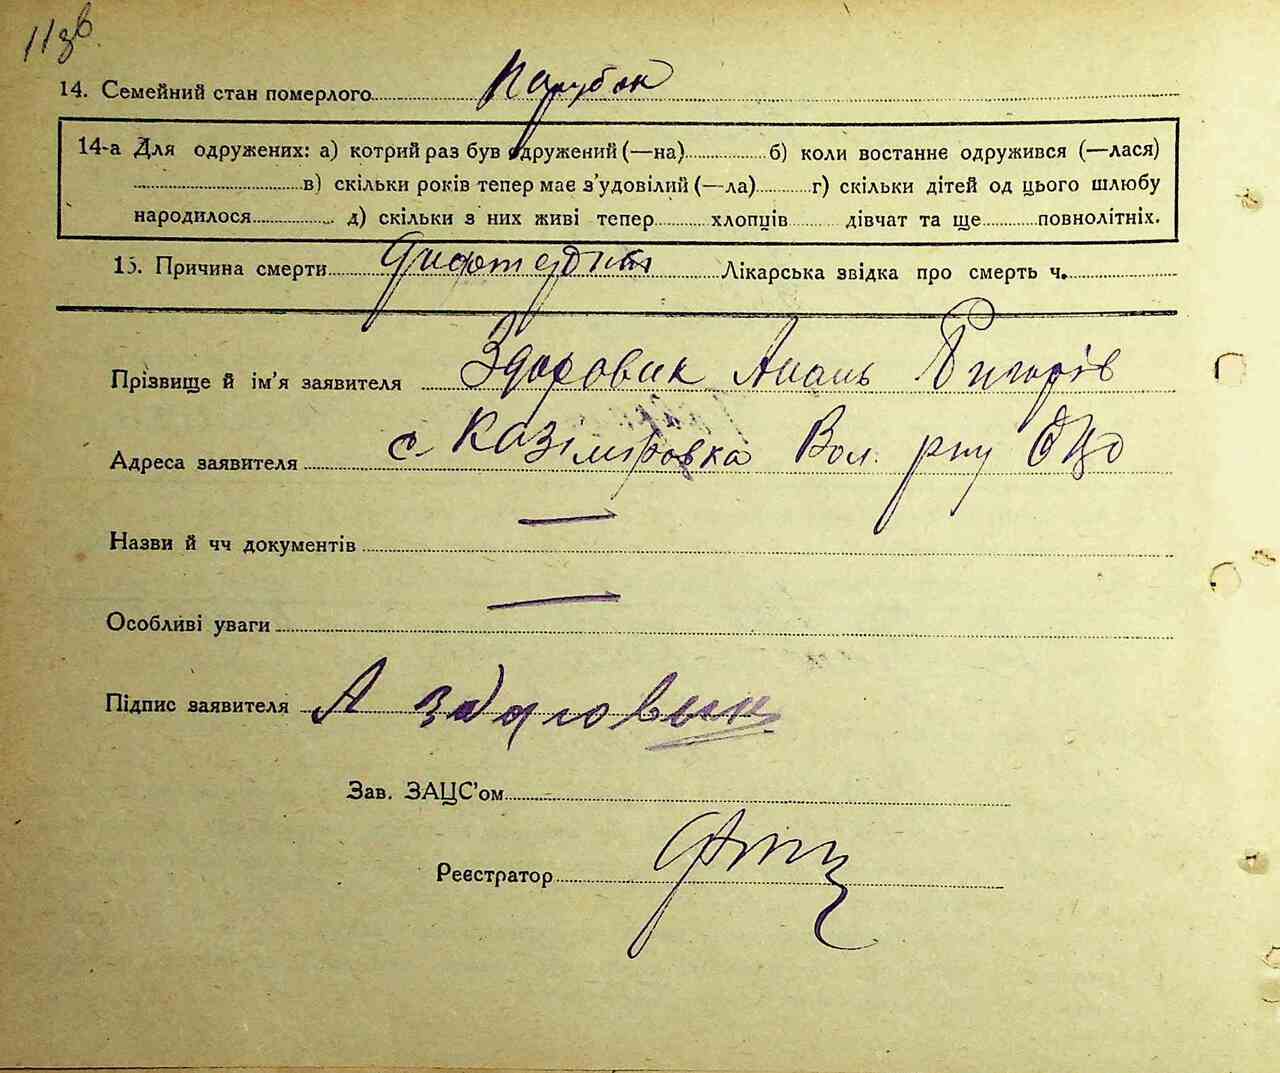 11зв
14. Семейний стан померлого Парубок
14-а Для одружених: а) котрий раз був одружений (—на) б) коли востаннє одружився (—лася)
в) скільки років тепер має з'удовілий (—ла) г) скільки дітей од цього шлюбу
народилося д) скільки з них живі тепер хлопців дівчат та ще повнолітніх.
15. Причина смерти Лікарська звідка про смерть ч.
Прізвище й ім'я заявителя Здоровик Анань Григорів
Адреса заявителя с. Казіміровка Вол. рну
Назви й чч документів —
Особливі уваги —
Підпис заявителя А Здаровик
Зав. ЗАЦС'ом
Реєстратор